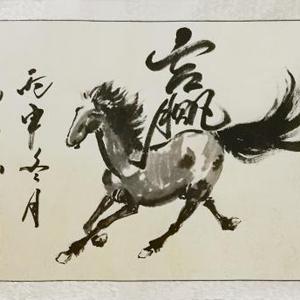 赢
丙申冬月